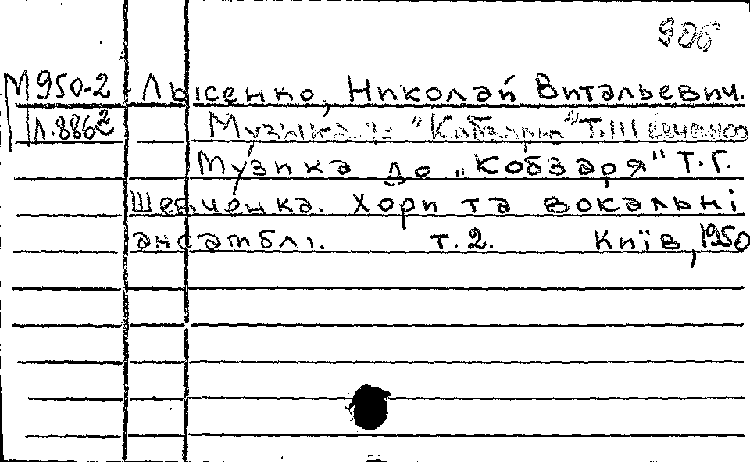 906
М950-2 Лысенко, Николай Витальевич.
Л.886² Музыка к "Кобзарю" Т.Шевченко
Музика до „Кобзаря" Т.Г.
Шевченка. Хори та вокальні
ансамблі. т.2. Київ, 1950